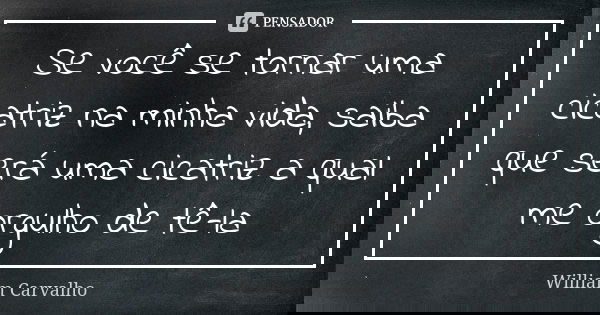 PENSADOR
Se você se tornar uma
cicatriz na minha vida, saiba
que será uma cicatriz a qual
me orgulho de tê-la
Willian Carvalho